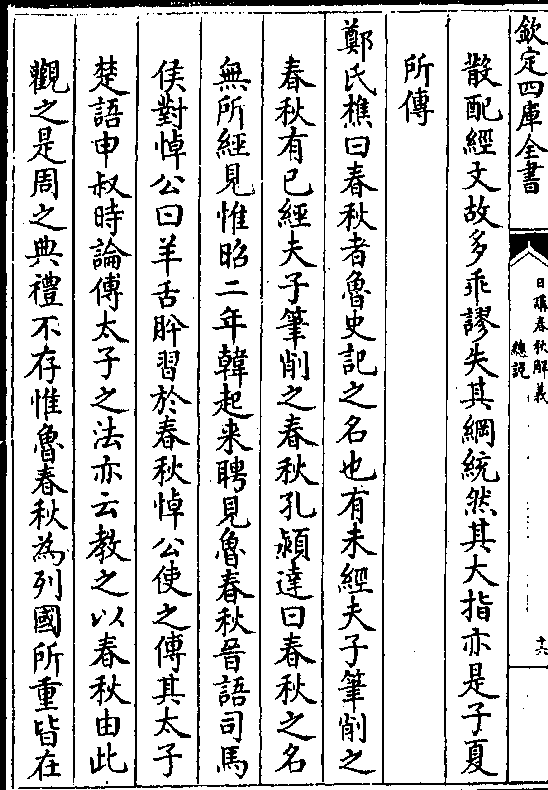 欽定四庫全書
日講春秋解義
總說
十六
散配經文故多乖謬失其綱統然其大指亦是子夏
所傳
鄭氏樵曰春秋者魯史記之名也有未經夫子筆削之
春秋有已經夫子筆削之春秋孔穎達曰春秋之名
無所經見惟昭二年韓起来聘見魯春秋晉語司馬
侯對悼公曰羊舌肸習於春秋悼公使之傅其太子
楚語申叔時論傅太子之法亦云教之以春秋由此
觀之是周之典禮不存惟魯春秋為列國所重皆在